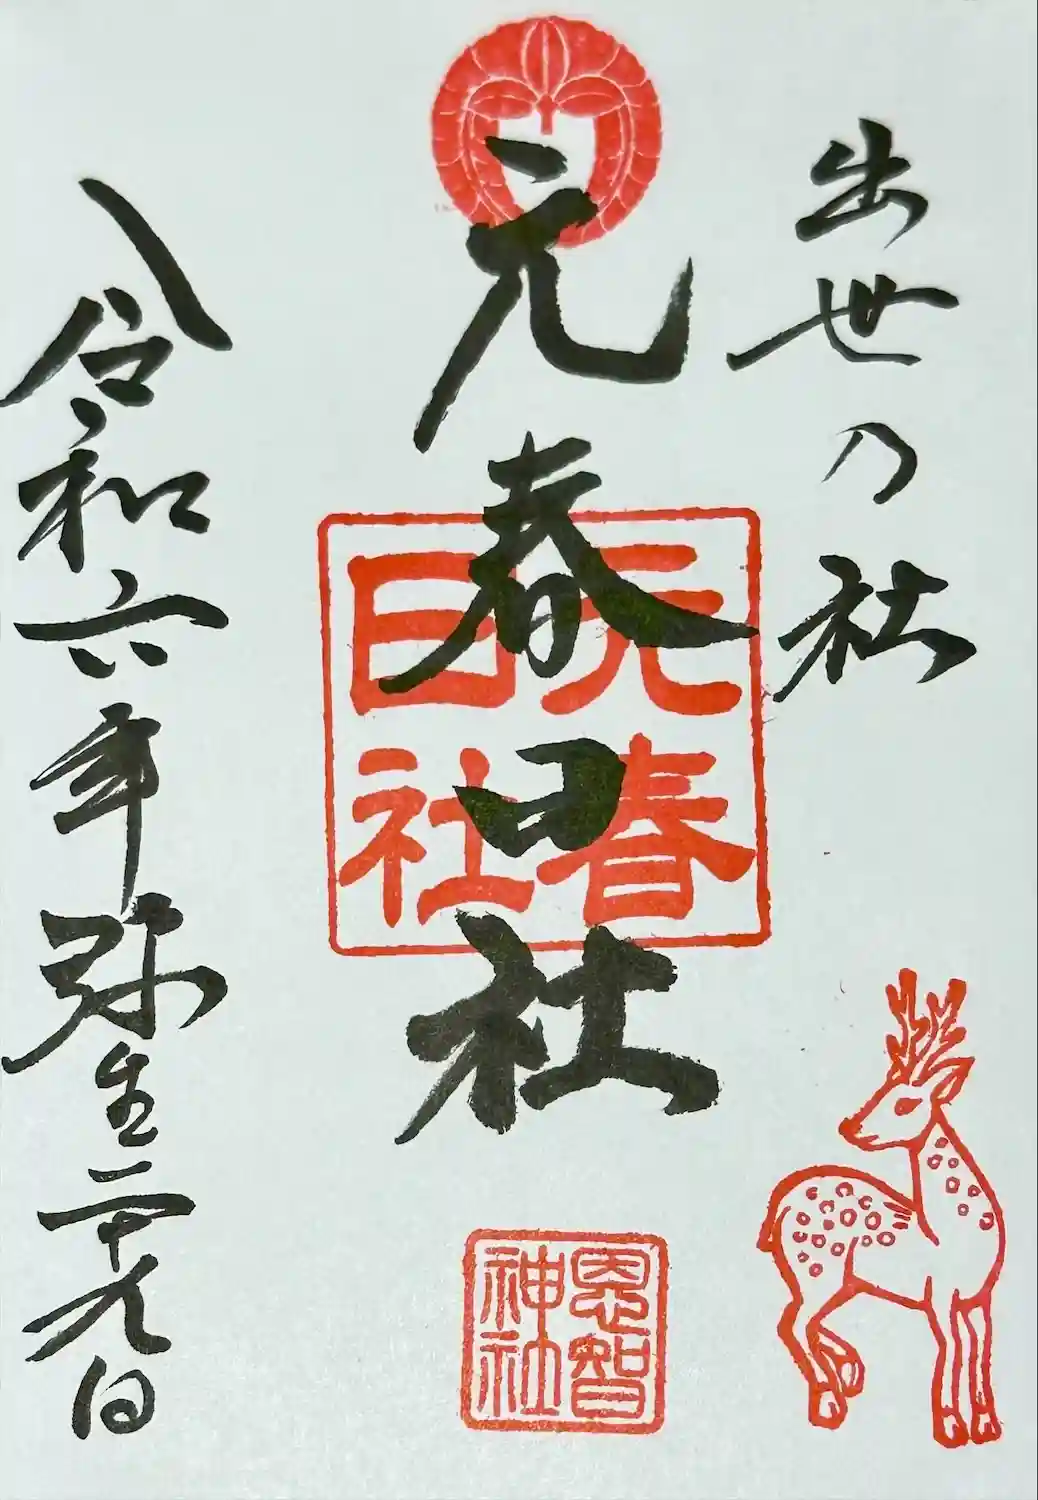 出世乃社
元春日社
元春日社
恩智神社
令和六年弥生二十九日